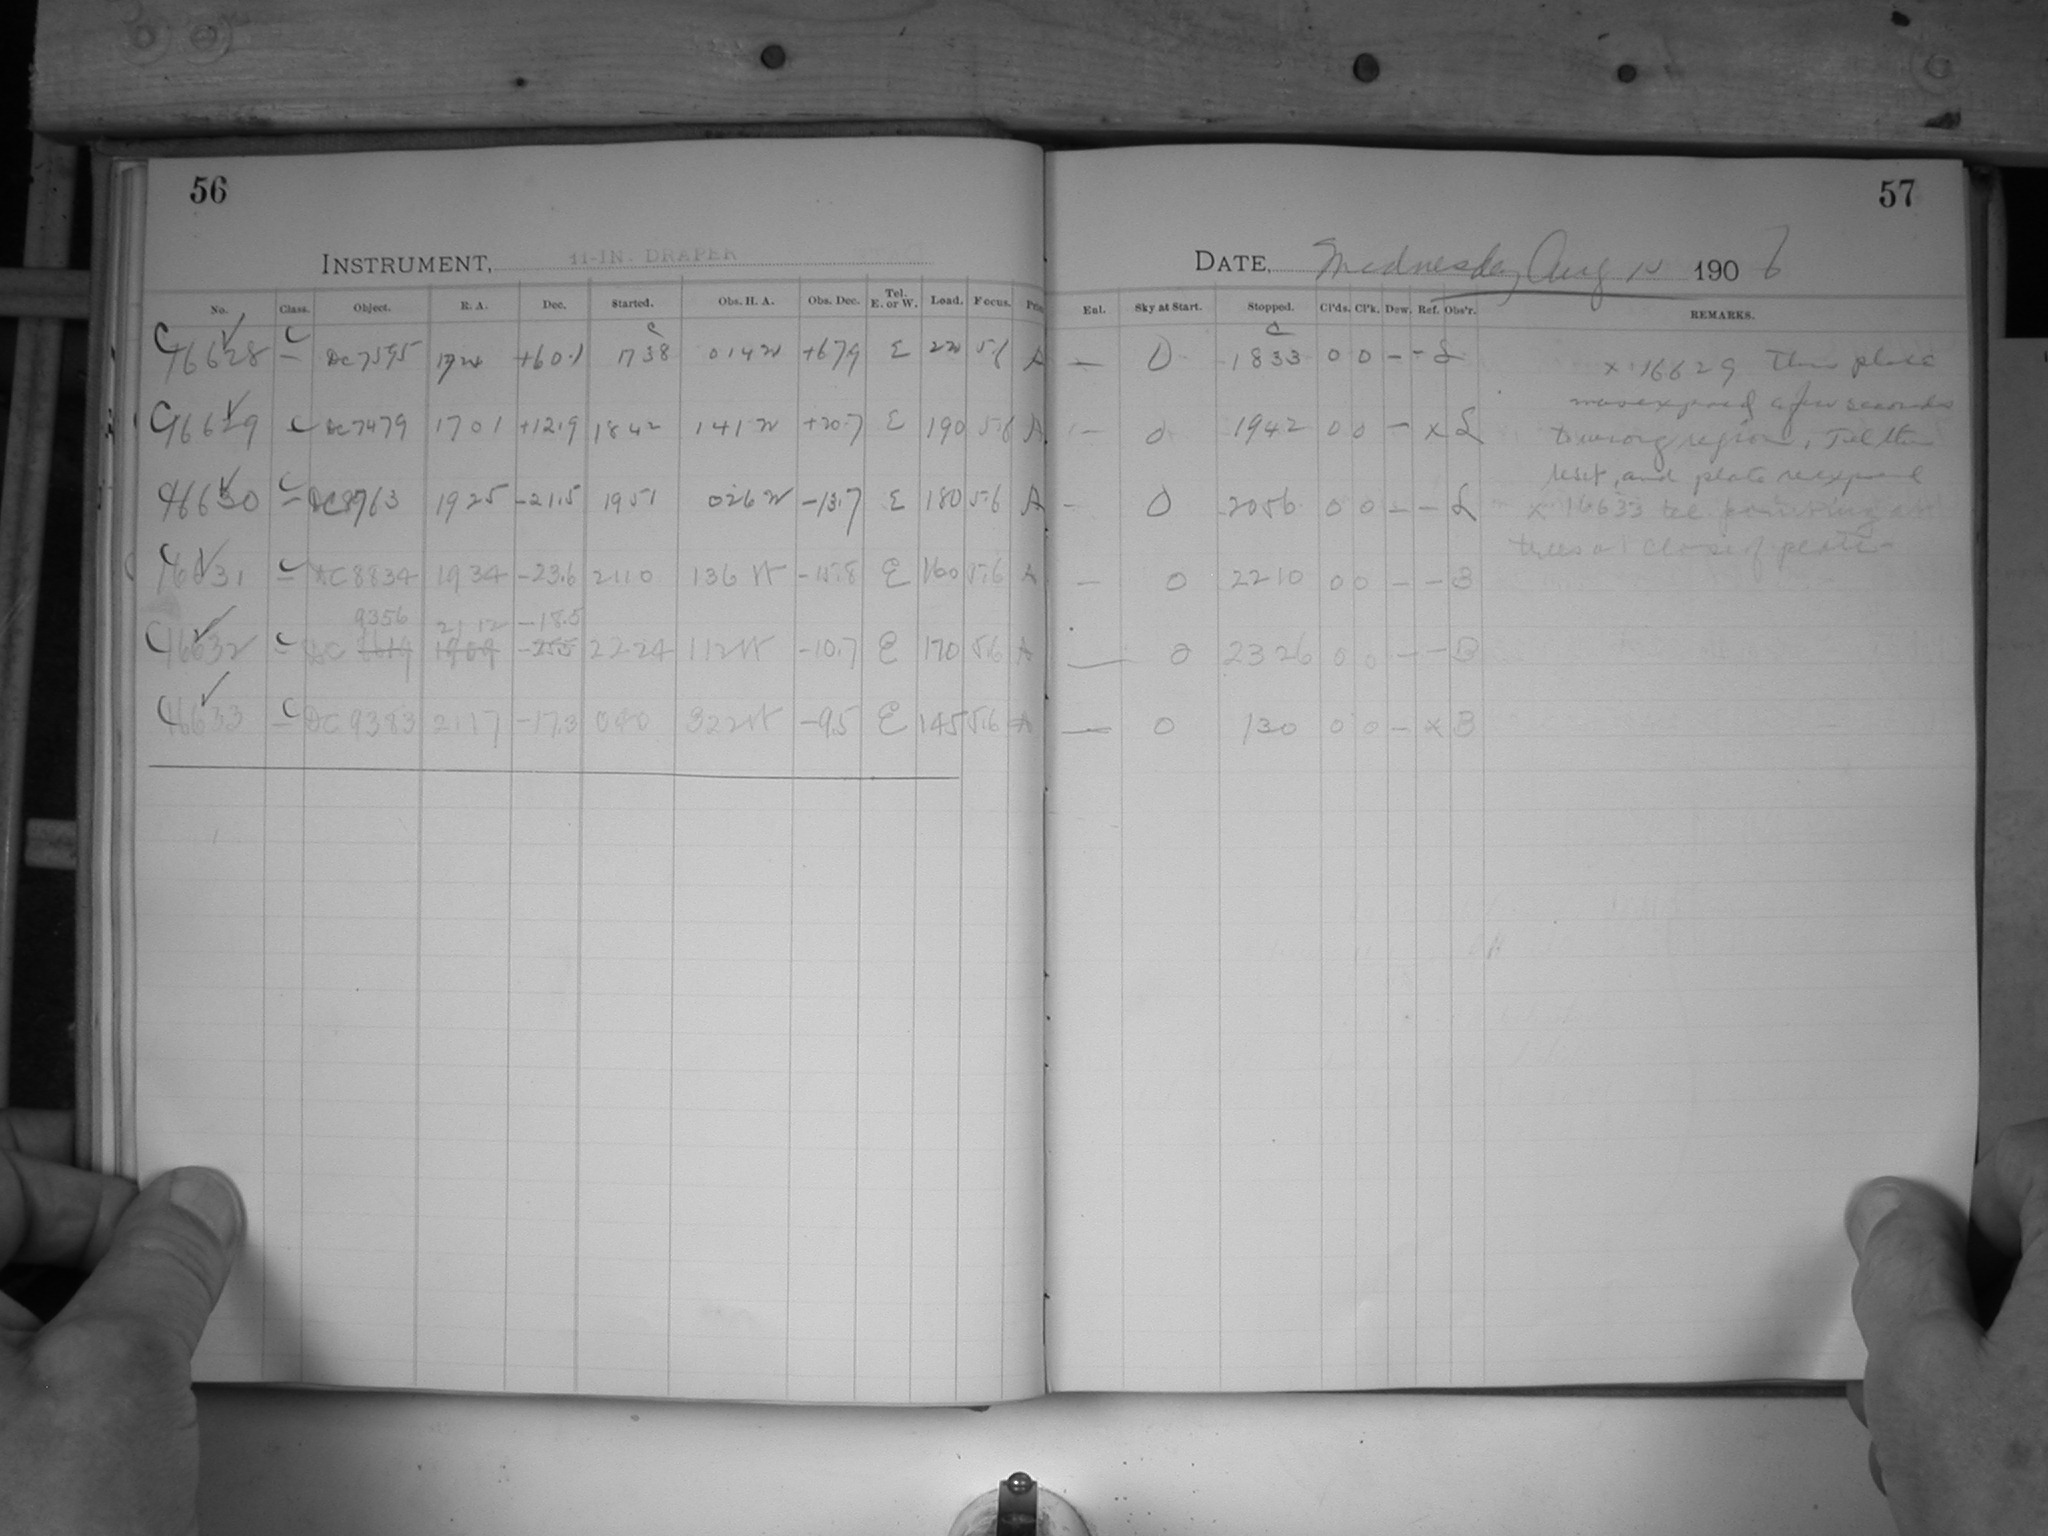 56
57
INSTRUMENT, 11-IN. DRAPER
DATE, Wednesday Aug 15 1906
No. Class. Object. R. A. Dec. Started. Obs. H. A. Obs. Dec. Tel. E. or W. Load. Focus.
Enl. Sky at Start. Stopped. Cl'ds. Cl'k. Dew. Ref. Obs'r. REMARKS.
C16628 C DC 7595 1724 +60.1 1738 014W +67.9 E 220 5.6 A — 0 1833 0 0 – – L
C16629 C DC 7479 1701 +12.9 1842 141W +20.7 E 190 5.6 A — 0 1942 0 0 – x L
C16630 C DC 8763 1925 –21.5 1951 026W –13.7 E 180 5.6 A – 0 2056 0 0 – – L
C16631 C AC 8834 1934 –23.6 2110 136W –15.8 E 160 5.6 A – 0 2210 0 0 – – B
9356 2112 –18.5
C16632 C DC 1909 –25.5 2224 112W –10.7 E 170 5.6 A — 0 2326 0 0 – – B
C16633 C DC 9383 2117 –17.3 040 322W –9.5 E 145 5.6 A — 0 130 0 0 – x B
x 16629 This plate
was exposed a few seconds
to wrong region. Tel then
reset, and plate reexposed
x 16633 tel pointing at
trees at close of plate